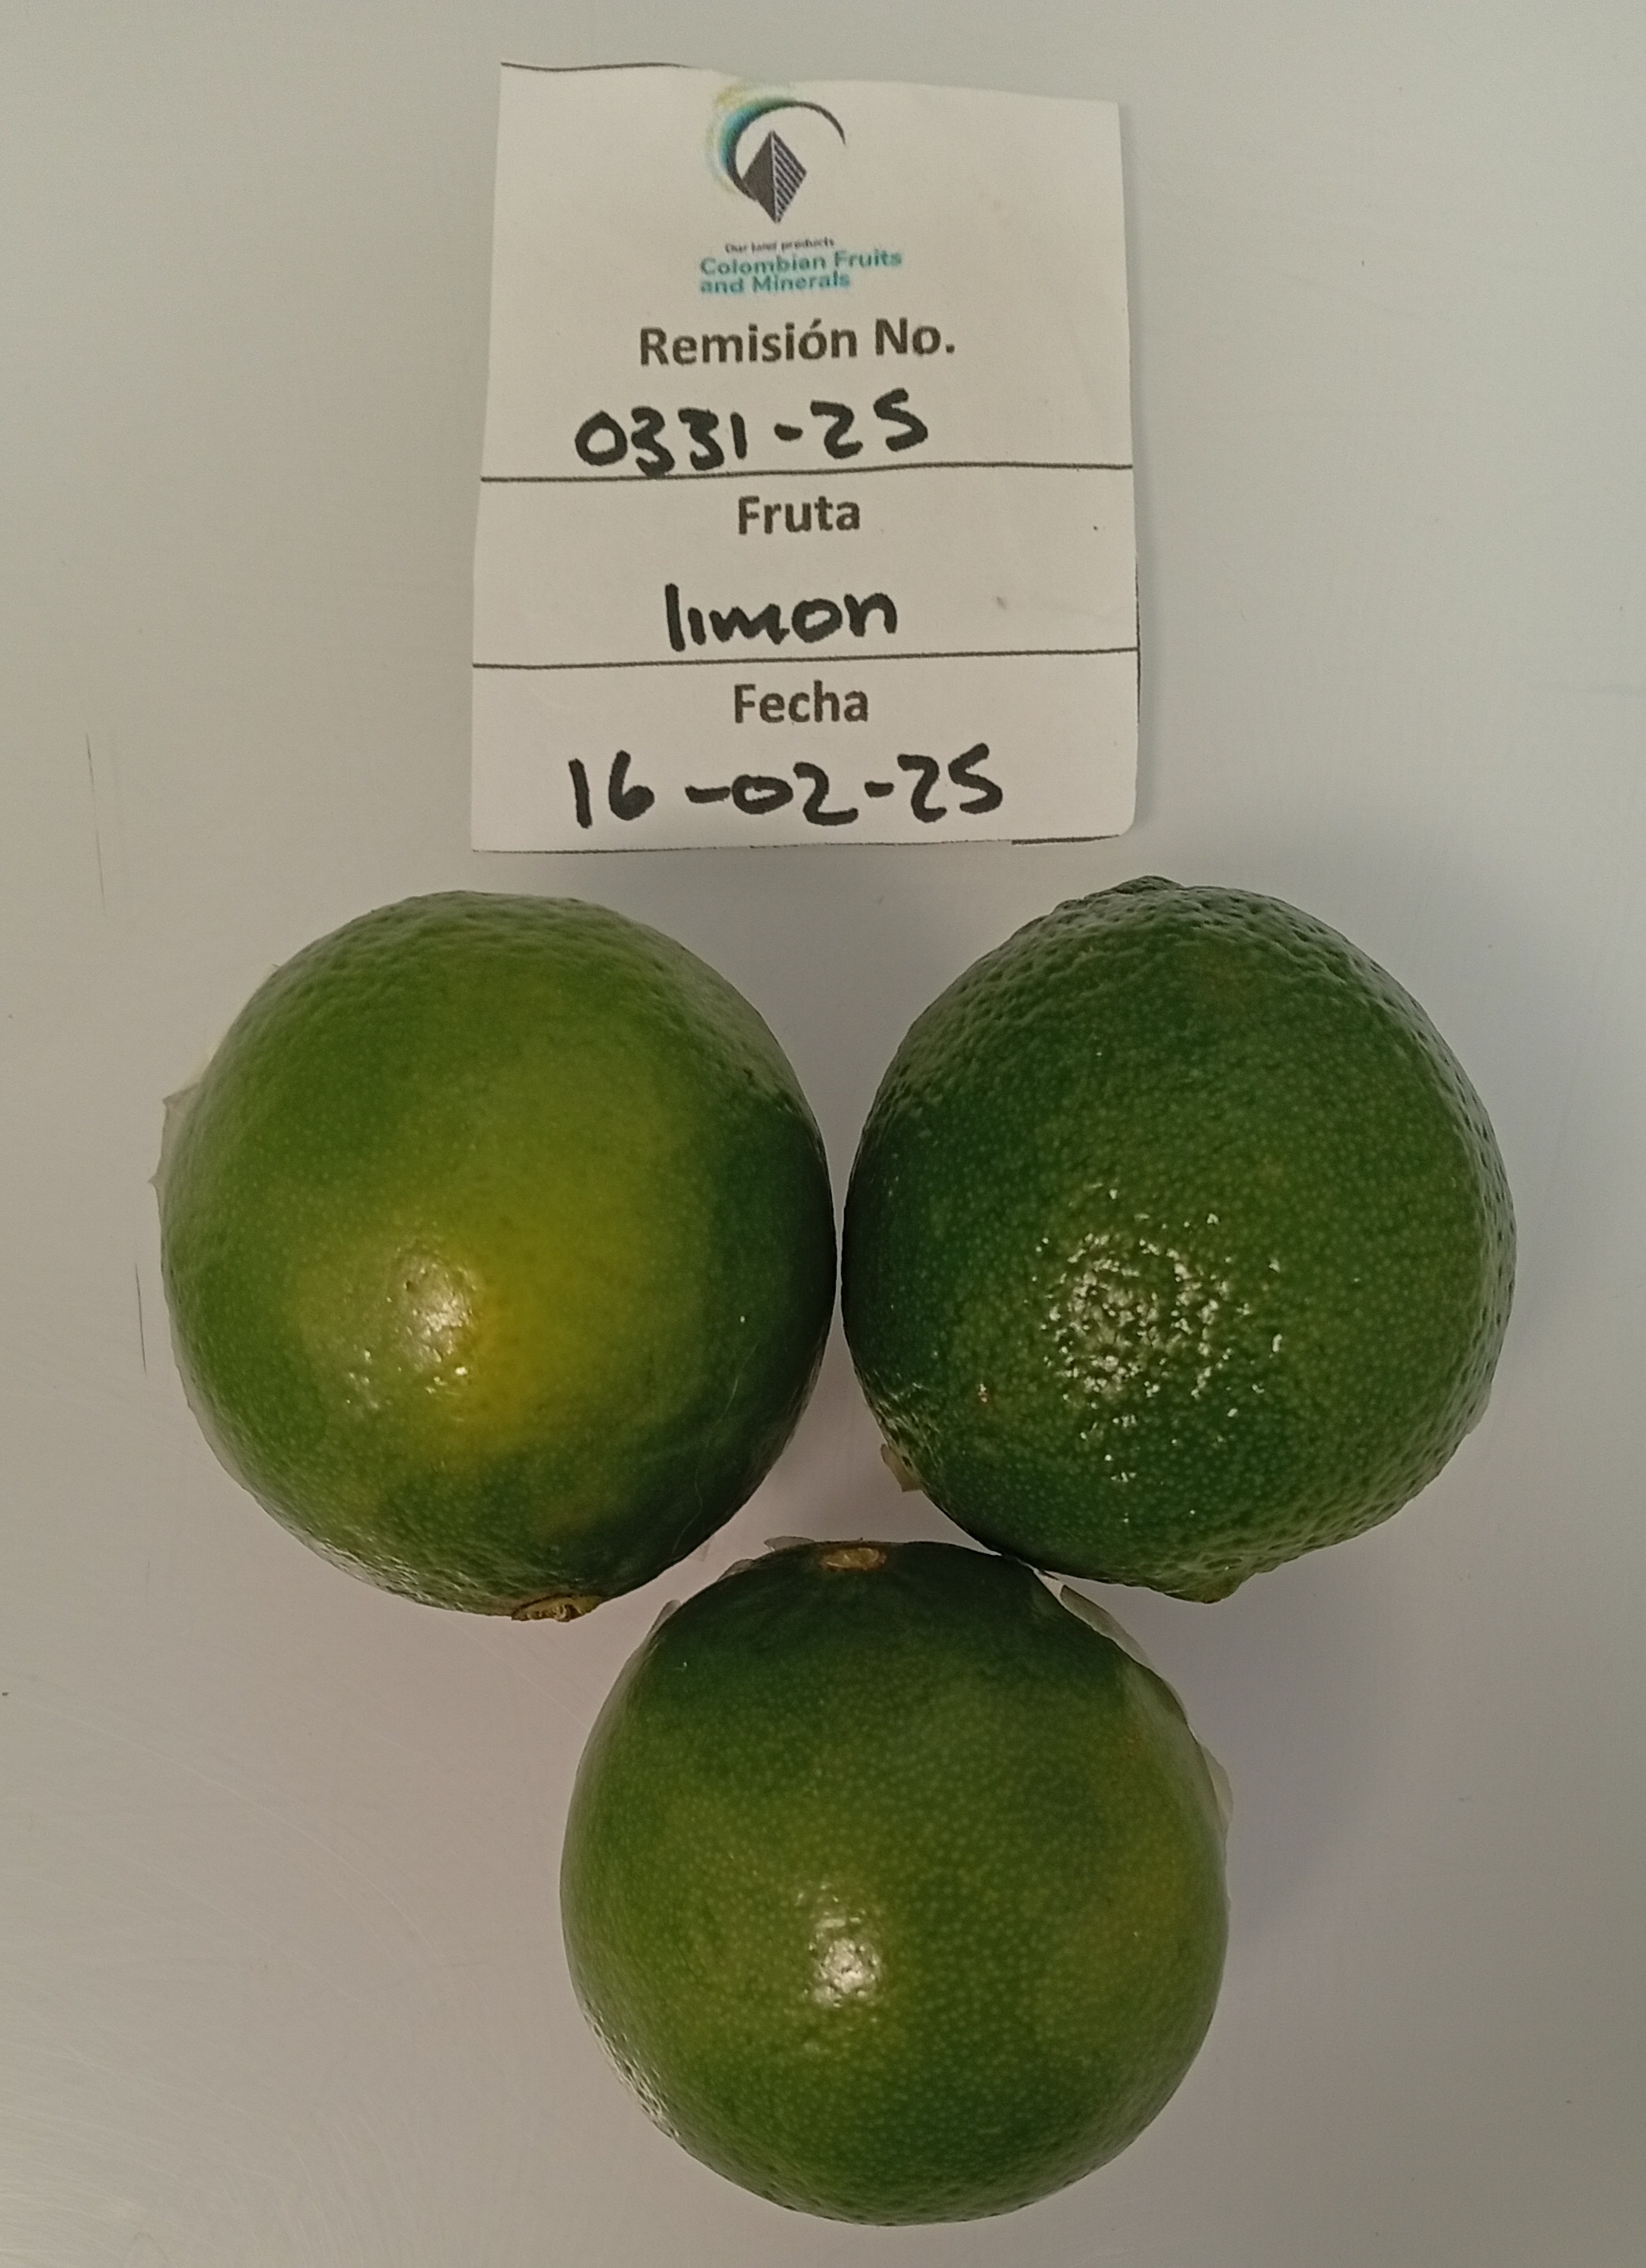 Our land products
Colombian Fruits
and Minerals
Remisión No.
0331-25
Fruta
limon
Fecha
16-02-25